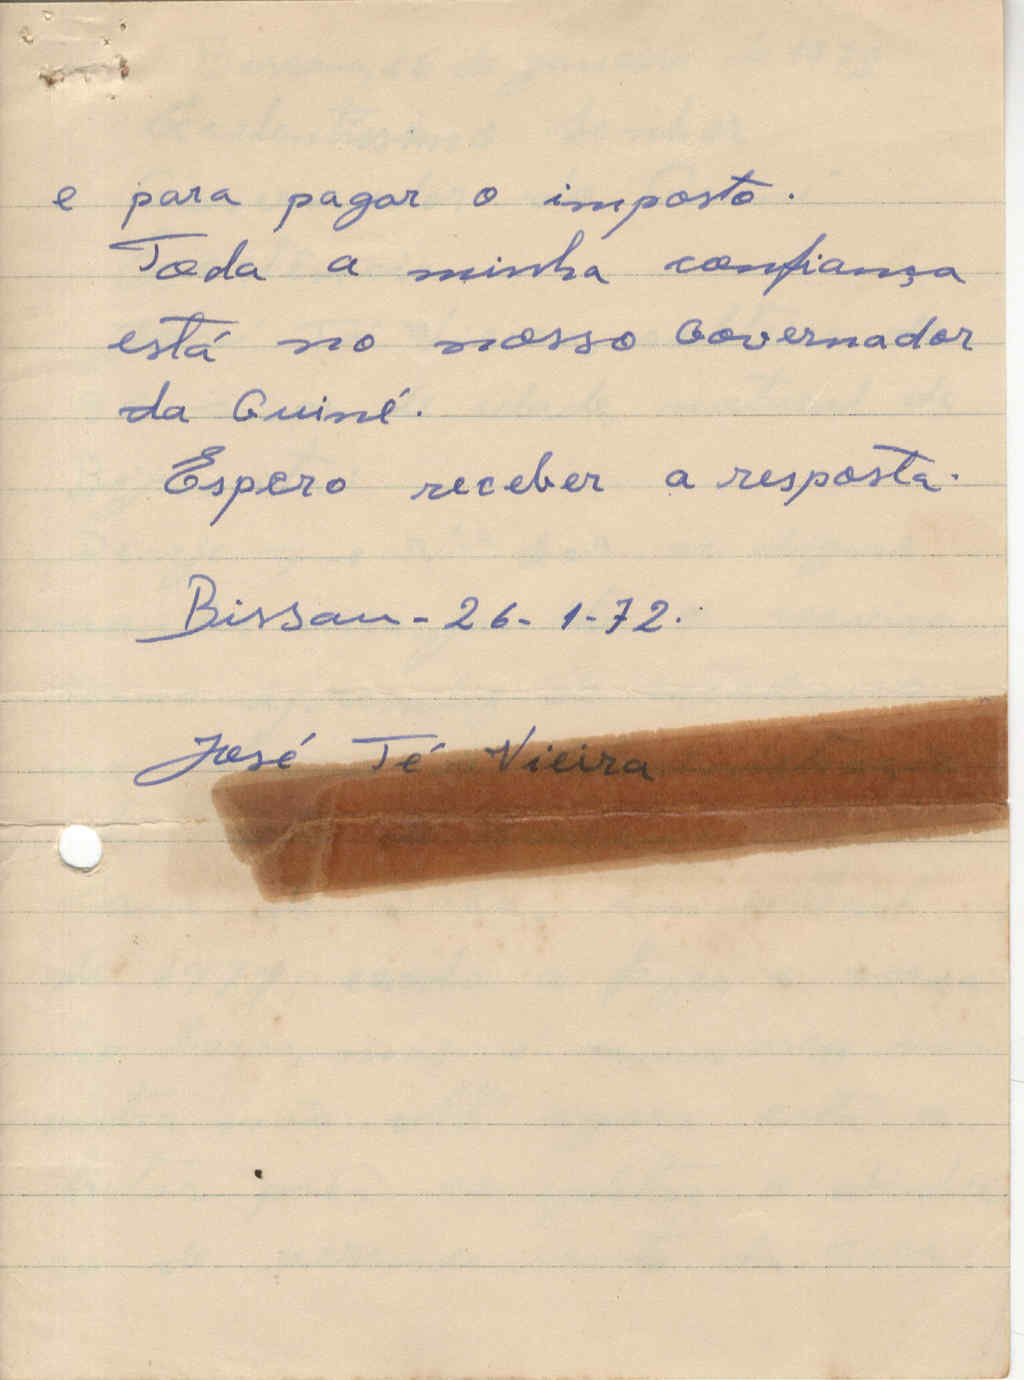 e para pagar o imposto.
Toda a minha confiança
está no nosso Governador
da Guiné.
Espero receber a resposta.
Bissau - 26 - 1 - 72.
José Té Vieira